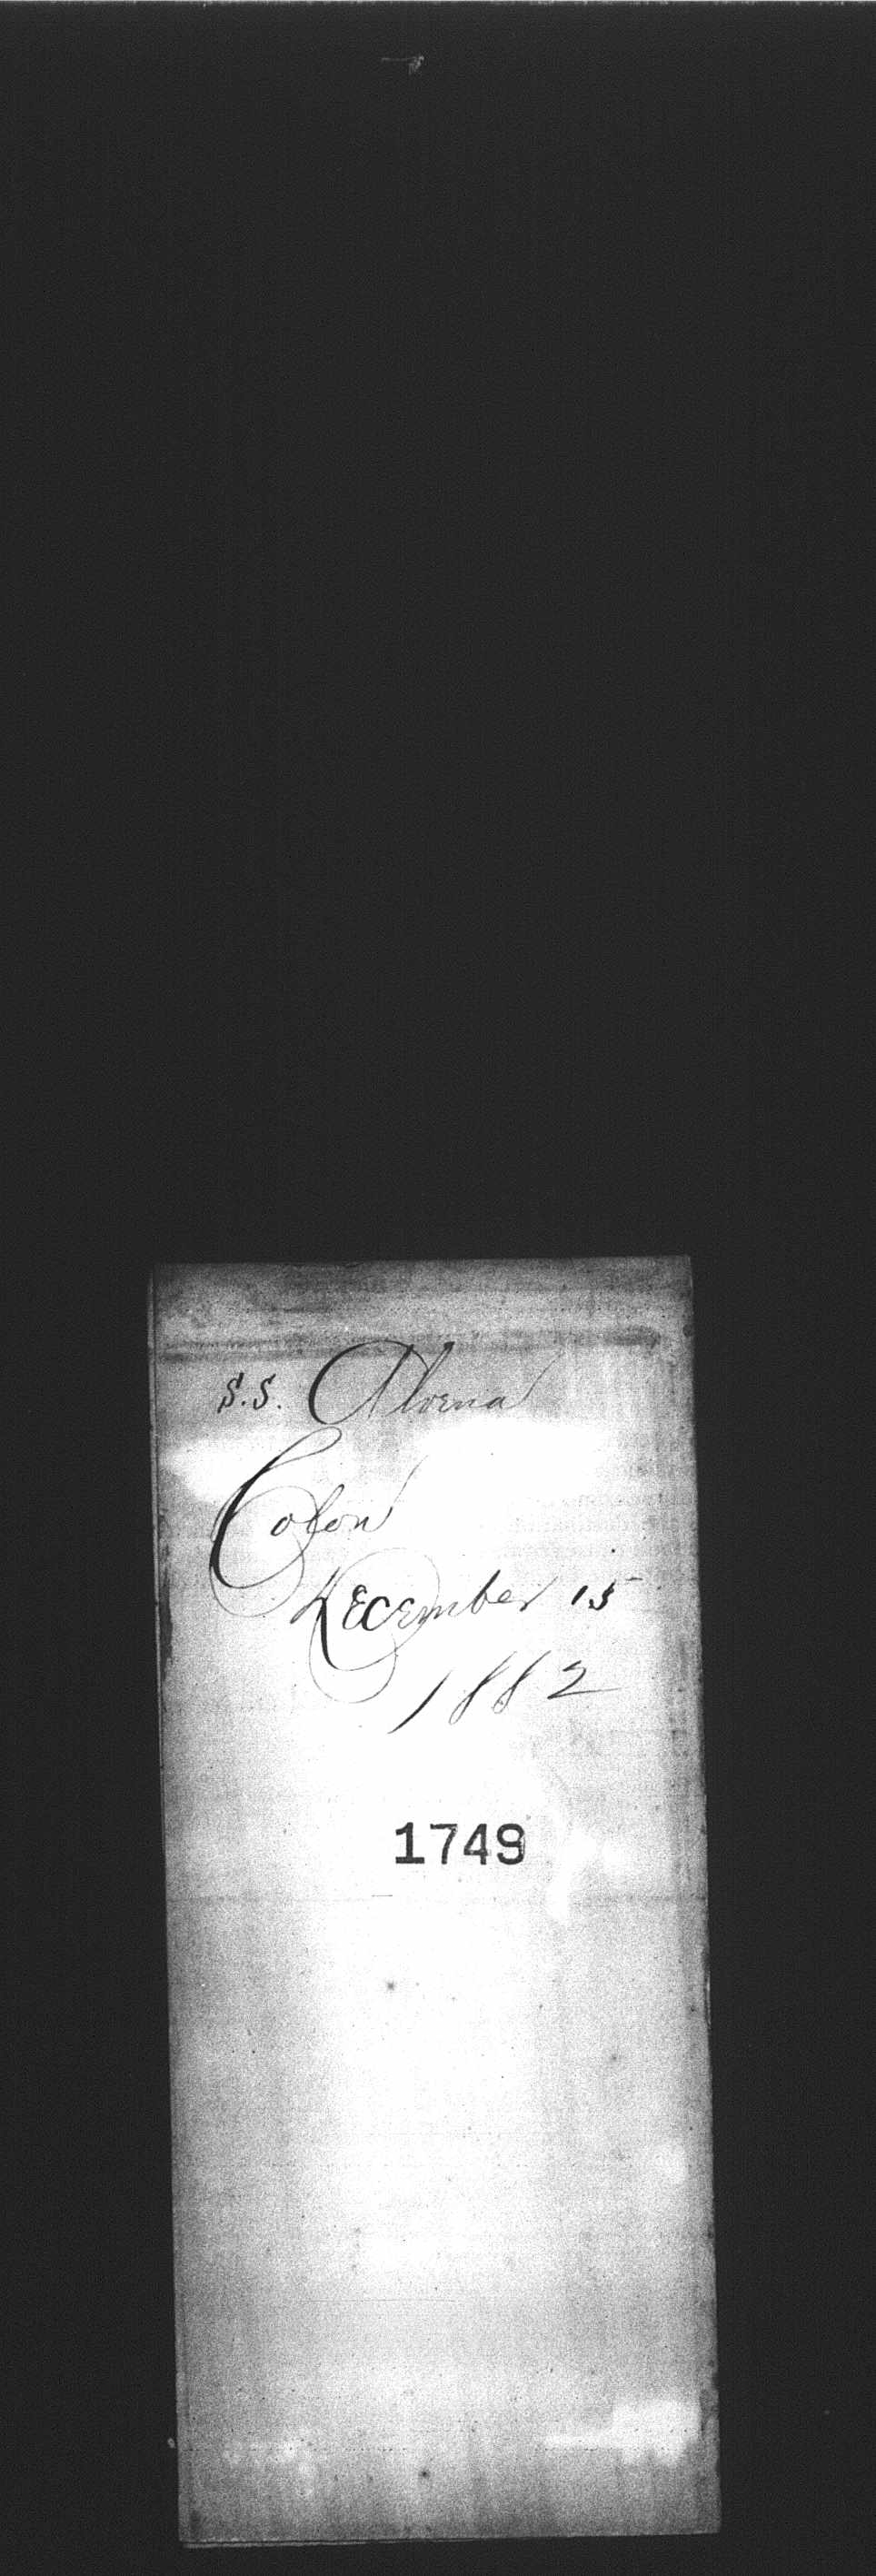 S.S. Alvena
Colon
December 15
1882
1749